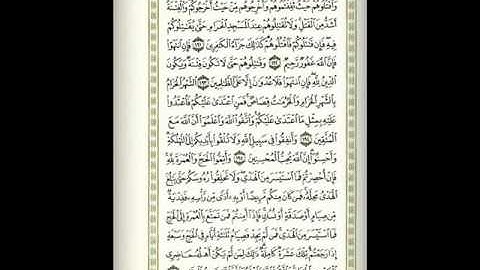 وَاقْتُلُوهُمْ حَيْثُ ثَقِفْتُمُوهُمْ وَأَخْرِجُوهُمْ مِنْ حَيْثُ أَخْرَجُوكُمْ وَالْفِتْنَةُ
أَشَدُّ مِنَ الْقَتْلِ وَلَا تُقَاتِلُوهُمْ عِنْدَ الْمَسْجِدِ الْحَرَامِ حَتَّى يُقَاتِلُوكُمْ
فِيهِ فَإِنْ قَاتَلُوكُمْ فَاقْتُلُوهُمْ كَذَلِكَ جَزَاءُ الْكَافِرِينَ ﴿١٩١﴾ فَإِنِ انْتَهَوْا
فَإِنَّ اللَّهَ غَفُورٌ رَحِيمٌ ﴿١٩٢﴾ وَقَاتِلُوهُمْ حَتَّى لَا تَكُونَ فِتْنَةٌ وَيَكُونَ
الدِّينُ لِلَّهِ فَإِنِ انْتَهَوْا فَلَا عُدْوَانَ إِلَّا عَلَى الظَّالِمِينَ ﴿١٩٣﴾ الشَّهْرُ الْحَرَامُ
بِالشَّهْرِ الْحَرَامِ وَالْحُرُمَاتُ قِصَاصٌ فَمَنِ اعْتَدَى عَلَيْكُمْ فَاعْتَدُوا
عَلَيْهِ بِمِثْلِ مَا اعْتَدَى عَلَيْكُمْ وَاتَّقُوا اللَّهَ وَاعْلَمُوا أَنَّ اللَّهَ مَعَ
الْمُتَّقِينَ ﴿١٩٤﴾ وَأَنْفِقُوا فِي سَبِيلِ اللَّهِ وَلَا تُلْقُوا بِأَيْدِيكُمْ إِلَى التَّهْلُكَةِ
وَأَحْسِنُوا إِنَّ اللَّهَ يُحِبُّ الْمُحْسِنِينَ ﴿١٩٥﴾ وَأَتِمُّوا الْحَجَّ وَالْعُمْرَةَ لِلَّهِ
فَإِنْ أُحْصِرْتُمْ فَمَا اسْتَيْسَرَ مِنَ الْهَدْيِ وَلَا تَحْلِقُوا رُءُوسَكُمْ حَتَّى يَبْلُغَ
الْهَدْيُ مَحِلَّهُ فَمَنْ كَانَ مِنْكُمْ مَرِيضًا أَوْ بِهِ أَذًى مِنْ رَأْسِهِ فَفِدْيَةٌ
مِنْ صِيَامٍ أَوْ صَدَقَةٍ أَوْ نُسُكٍ فَإِذَا أَمِنْتُمْ فَمَنْ تَمَتَّعَ بِالْعُمْرَةِ إِلَى الْحَجِّ
فَمَا اسْتَيْسَرَ مِنَ الْهَدْيِ فَمَنْ لَمْ يَجِدْ فَصِيَامُ ثَلَاثَةِ أَيَّامٍ فِي الْحَجِّ وَسَبْعَةٍ
إِذَا رَجَعْتُمْ تِلْكَ عَشَرَةٌ كَامِلَةٌ ذَلِكَ لِمَنْ لَمْ يَكُنْ أَهْلُهُ حَاضِرِي